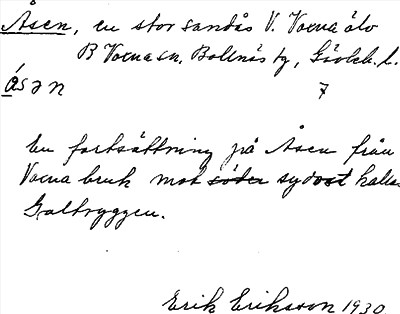 Åsen, en stor sandås V. Voxna älv
B Voxna sn. Bollnäs tg, Gävleb. l.
åsən 7
En fortsättning på Åsen från
Voxna bruk mot söder sydost kallas
Galtryggen.
Erik Eriksson 1930